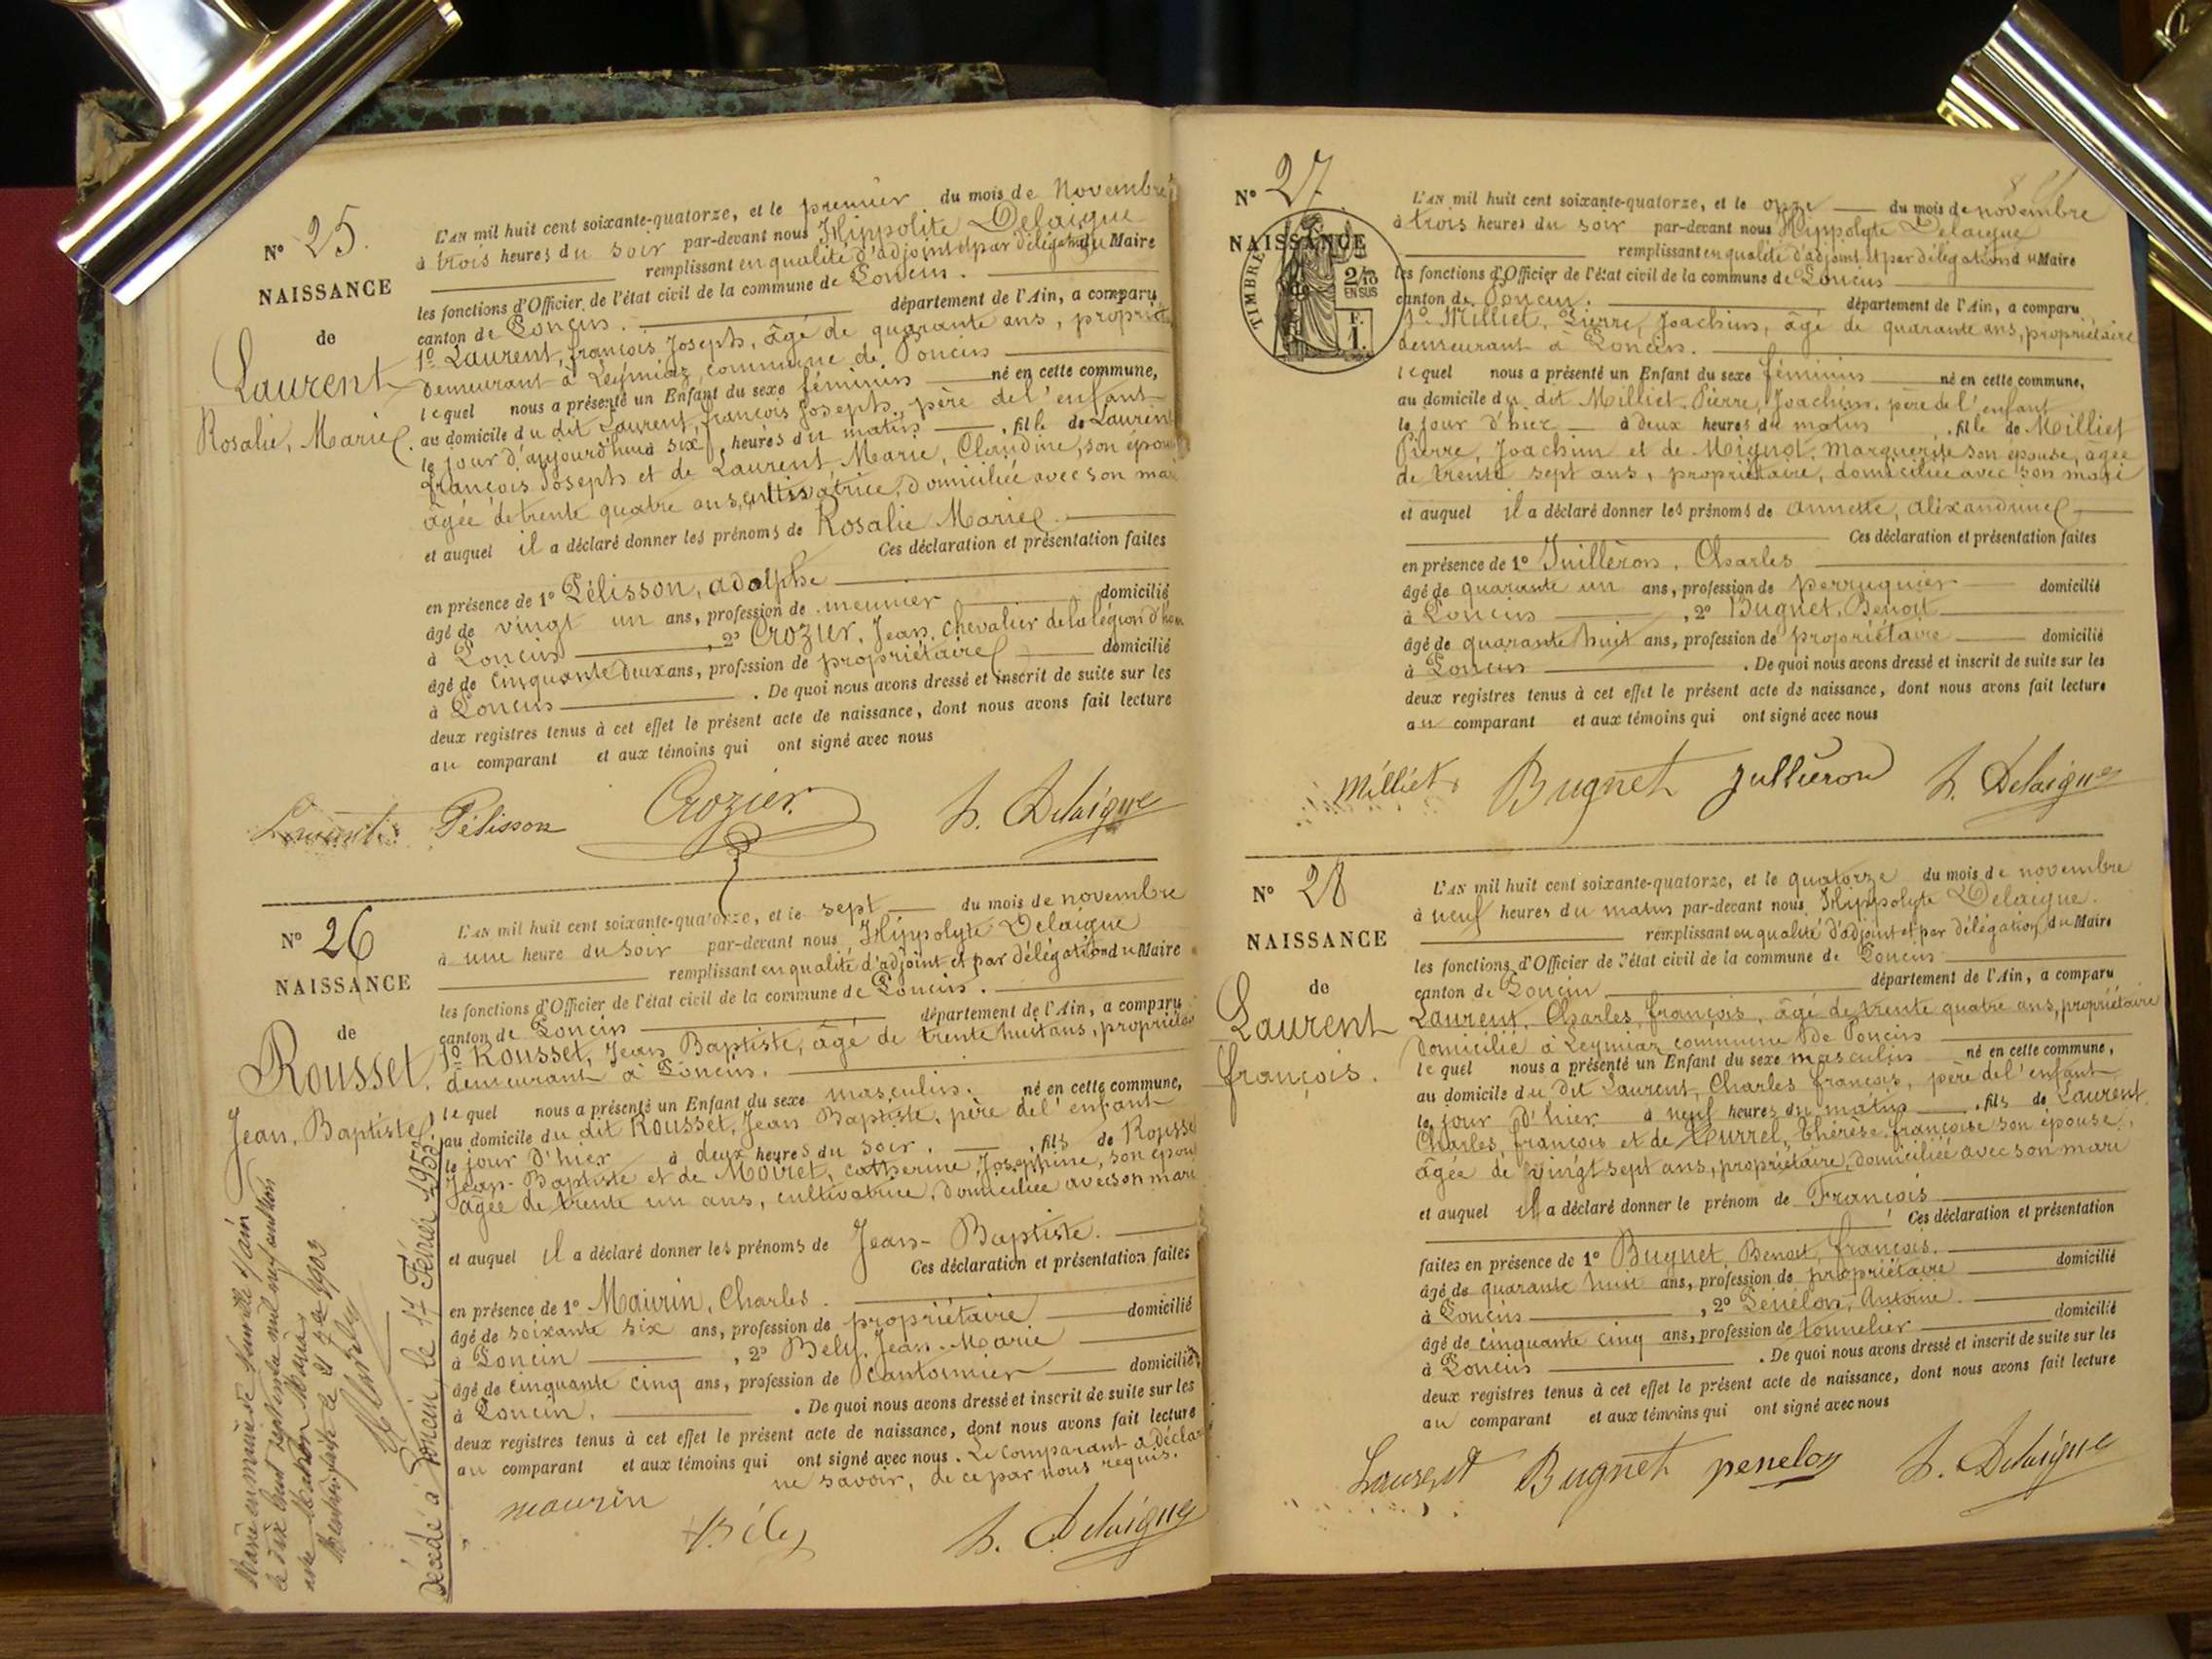 N° 25.
NAISSANCE
de
Laurent
Rosalie, Marie.
L'AN mil huit cent soixante-quatorze, et le premier du mois de Novembre
à trois heures du soir par-devant nous Hippolite Delaigue
remplissant en qualité d'adjoint et par délégation du Maire
les fonctions d'Officier de l'état civil de la commune de Poncin.
canton de Poncin. département de l'Ain, a comparu
1° Laurent, françois Joseph, âgé de quarante ans,
demeurant à Leymiaz, commune de Poncin
lequel nous a présenté un Enfant du sexe féminin né en cette commune,
au domicile du dit Laurent, françois Joseph, père de l'enfant
le jour d'aujourd'hui à six heures du matin, fille de Laurent
françois Joseph et de Laurent, Marie, Claudine, son
âgée de trente quatre ans, cultivatrice, domiciliée avec son
et auquel il a déclaré donner les prénoms de Rosalie Marie.
Ces déclaration et présentation faites
en présence de 1° Pélisson, adolphe
âgé de vingt un ans, profession de meunier domicilié
à Poncin, 2° Crozier, Jean, chevalier de la légion
âgé de cinquante deux ans, profession de propriétaire domicilié
à Poncin. De quoi nous avons dressé et inscrit de suite sur les
deux registres tenus à cet effet le présent acte de naissance, dont nous avons fait lecture
au comparant et aux témoins qui ont signé avec nous
Laurent Pélisson Crozier. h. Delaigue
N° 26
NAISSANCE
de
Rousset.
Jean, Baptiste.
Marié en mairie de
le dix huit septembre mil neuf cent
avec
le 1903
Décédé à Poncin, le 17 Février 1953
L'AN mil huit cent soixante-quatorze, et le sept du mois de novembre
à une heure du soir par-devant nous Hippolyte Delaigue
remplissant en qualité d'adjoint et par délégation du Maire
les fonctions d'Officier de l'état civil de la commune de Poncin.
canton de Poncin département de l'Ain, a comparu
1° Rousset, Jean Baptiste, âgé de trente huit ans,
demeurant à Poncin.
lequel nous a présenté un Enfant du sexe masculin. né en cette commune,
au domicile du dit Rousset, Jean Baptiste, père de l'enfant
le jour d'hier à deux heures du soir. , fils de
Jean-Baptiste et de Moiret, catherine Josephine, son
âgée de trente un ans, cultivatrice, domiciliée avec son mari
et auquel il a déclaré donner les prénoms de Jean-Baptiste.
Ces déclaration et présentation faites
en présence de 1° Maurin, Charles.
âgé de soixante six ans, profession de propriétaire domicilié
à Poncin, 2° Bely, Jean-Marie
âgé de cinquante cinq ans, profession de cantonnier domicilié
à Poncin. . De quoi nous avons dressé et inscrit de suite sur les
deux registres tenus à cet effet le présent acte de naissance, dont nous avons fait lecture
au comparant et aux témoins qui ont signé avec nous. Le comparant a
ne savoir, de ce par nous requis.
maurin Bély h. Delaigue
N° 27.
NAISSANCE
de
TIMBRE
2/10
EN SUS
F.
1.
L'AN mil huit cent soixante-quatorze, et le onze du mois de novembre
à trois heures du soir par-devant nous Hippolyte Delaigue
remplissant en qualité d'adjoint et par délégation du Maire
les fonctions d'Officier de l'état civil de la commune de Poncin
canton de Poncin. département de l'Ain, a comparu
1° Milliet, Pierre, Joachim, âgé de quarante ans, propriétaire
demeurant à Poncin.
lequel nous a présenté un Enfant du sexe féminin né en cette commune,
au domicile du dit Milliet, Pierre, Joachim, père de l'enfant
le jour d'hier à deux heures du matin, fille de Milliet
Pierre, Joachim et de Mignot, Marguerite son épouse, âgée
de trente sept ans, propriétaire, domiciliée avec son mari
et auquel il a déclaré donner les prénoms de annette, aléxandrine
Ces déclaration et présentation faites
en présence de 1° Juilléron, Charles
âgé de quarante un ans, profession de perruquier domicilié
à Poncin, 2° Bugnet, Benoit
âgé de quarante huit ans, profession de propriétaire domicilié
à Poncin. De quoi nous avons dressé et inscrit de suite sur les
deux registres tenus à cet effet le présent acte de naissance, dont nous avons fait lecture
au comparant et aux témoins qui ont signé avec nous
Milliet Bugnet Jullieron h. Delaigue
N° 28
NAISSANCE
de
Laurent
françois.
L'AN mil huit cent soixante-quatorze, et le quatorze du mois de novembre
à neuf heures du matin par-devant nous Hippolyte Delaigue.
remplissant en qualité d'adjoint et par délégation du Maire
les fonctions d'Officier de l'état civil de la commune de Poncin
canton de Poncin département de l'Ain, a comparu
Laurent, Charles, françois, âgé de trente quatre ans, propriétaire
domicilié à Leymiaz commune de Poncin
lequel nous a présenté un Enfant du sexe masculin né en cette commune,
au domicile du dit Laurent, Charles françois, père de l'enfant
le jour d'hier à neuf heures du matin, fils de Laurent
Charles, françois et de Thérèse françoise son épouse,
âgée de vingt sept ans, propriétaire, domiciliée avec son mari
et auquel il a déclaré donner le prénom de François
Ces déclaration et présentation
faites en présence de 1° Bugnet, Benoit, françois.
âgé de quarante huit ans, profession de propriétaire domicilié
à Poncin, 2° Penelon, Antoine.
âgé de cinquante cinq ans, profession de tonnelier domicilié
à Poncin. De quoi nous avons dressé et inscrit de suite sur les
deux registres tenus à cet effet le présent acte de naissance, dont nous avons fait lecture
au comparant et aux témoins qui ont signé avec nous
Laurent Bugnet penelon h. Delaigue